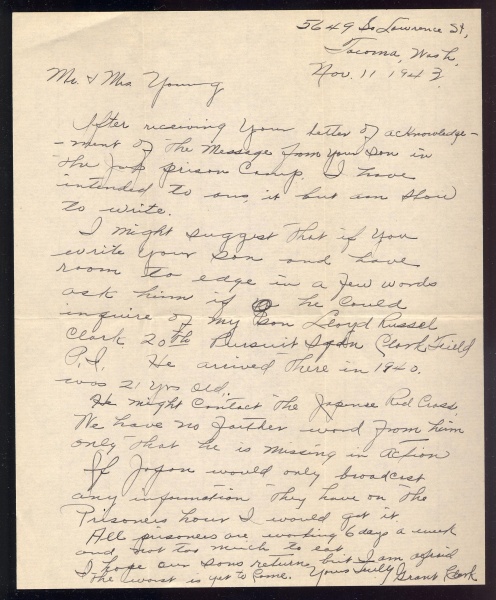 5649 So Lawrence St,
Tacoma, Wash.
Nov. 11 1943.
Mr. & Mrs Young
After receiving your letter of acknowledge-
-ment of the message from your son in
the Jap prison Camp. I have
intended to ans, it but am slow
to write.
I might suggest that if you
write your son and have
room to edge in a few words
ask him if he could
inquire of my son Lloyd Russel
Clark 20th Pursuit Sqdn Clark Field
P.I. He arived there in 1940.
was 21 yrs old.
He might Contact the Japense Red Cross.
We have no farther word from him
only that he is missing in Action
If Japan would only broadcast
any information they have on the
Prisoners hour I would get it.
All prisoners are working 6 days a week
and not too much to eat.
I hope our sons return but I am afraid
the worst is yet to Come. Yours Truly Grant Clark